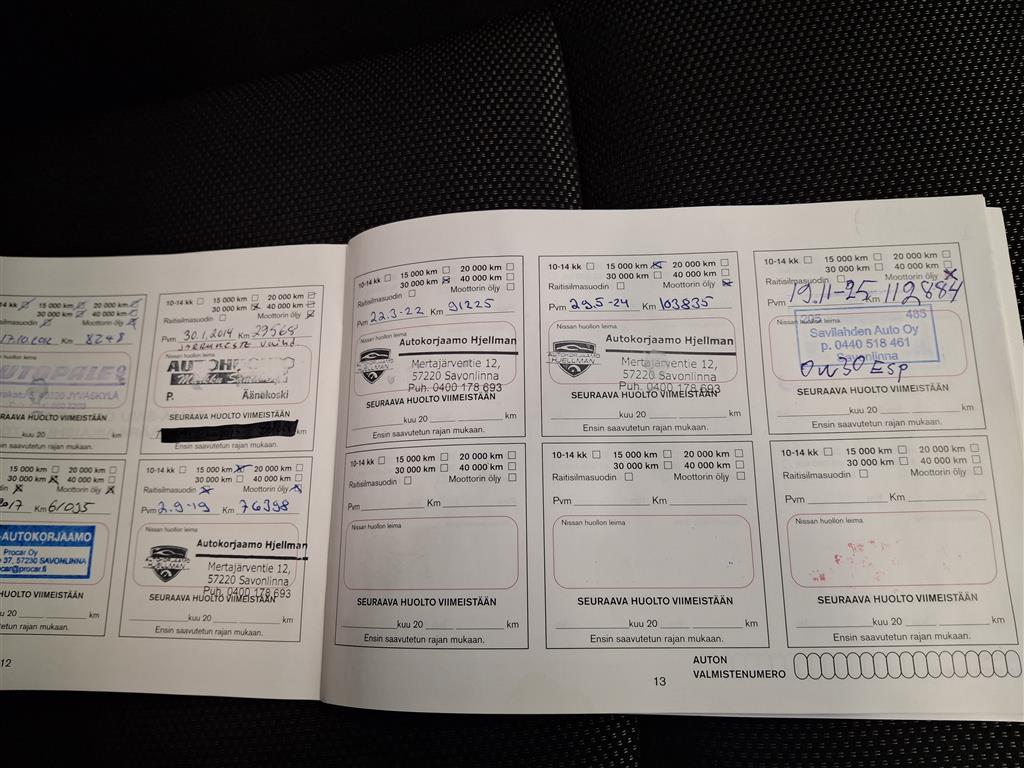 15 000 km 20 000 km
30 000 km 40 000 km
Moottorin öljy
17.10.2012 Km 8248
huollon leima
AUTOPALES
JYVÄSKYLÄ
HUOLTO VIIMEISTÄÄN
kuu 20 km
saavutetun rajan mukaan.
10-14 kk 15 000 km 20 000 km
30 000 km 40 000 km
Raitisilmasuodin Moottorin öljy
Pvm 30.1.2014 Km 29568
Nissan huollon leima
P. Äänekoski
SEURAAVA HUOLTO VIIMEISTÄÄN
km
Ensin saavutetun rajan mukaan.
15 000 km 20 000 km
30 000 km 40 000 km
Moottorin öljy
2017 Km 61035
-AUTOKORJAAMO
Procar Oy
37, 57230 SAVONLINNA
car@procar.fi
HUOLTO VIIMEISTÄÄN
kuu 20 km
Ensin saavutetun rajan mukaan.
10-14 kk 15 000 km 20 000 km
30 000 km 40 000 km
Raitisilmasuodin Moottorin öljy
Pvm 2.9-19 Km 76398
Nissan huollon leima
AUTOKORJAAMO
HJELLMAN
Autokorjaamo Hjellman
Mertajärventie 12,
57220 Savonlinna
Puh. 0400 178 693
SEURAAVA HUOLTO VIIMEISTÄÄN
kuu 20 km
Ensin saavutetun rajan mukaan.
12
10-14 kk 15 000 km 20 000 km
30 000 km 40 000 km
Raitisilmasuodin Moottorin öljy
Pvm 22.3-22 Km 91225
Nissan huollon leima
AUTOKORJAAMO
HJELLMAN
Autokorjaamo Hjellman
Mertajärventie 12,
57220 Savonlinna
Puh. 0400 178 693
SEURAAVA HUOLTO VIIMEISTÄÄN
kuu 20 km
Ensin saavutetun rajan mukaan.
10-14 kk 15 000 km 20 000 km
30 000 km 40 000 km
Raitisilmasuodin Moottorin öljy
Pvm 29.5-24 Km 103835
Nissan huollon leima
AUTOKORJAAMO
HJELLMAN
Autokorjaamo Hjellman
Mertajärventie 12,
57220 Savonlinna
Puh. 0400 178 693
SEURAAVA HUOLTO VIIMEISTÄÄN
kuu 20 km
Ensin saavutetun rajan mukaan.
10-14 kk 15 000 km 20 000 km
30 000 km 40 000 km
Raitisilmasuodin Moottorin öljy
Pvm 19.11-25 112884
Nissan huollon leima
205 485
Savilahden Auto Oy
p. 0440 518 461
Savonlinna
0W30 ESP
SEURAAVA HUOLTO VIIMEISTÄÄN
kuu 20 km
Ensin saavutetun rajan mukaan.
10-14 kk 15 000 km 20 000 km
30 000 km 40 000 km
Raitisilmasuodin Moottorin öljy
Pvm Km
Nissan huollon leima
SEURAAVA HUOLTO VIIMEISTÄÄN
kuu 20 km
Ensin saavutetun rajan mukaan.
10-14 kk 15 000 km 20 000 km
30 000 km 40 000 km
Raitisilmasuodin Moottorin öljy
Pvm Km
Nissan huollon leima
SEURAAVA HUOLTO VIIMEISTÄÄN
kuu 20 km
Ensin saavutetun rajan mukaan.
10-14 kk 15 000 km 20 000 km
30 000 km 40 000 km
Raitisilmasuodin Moottorin öljy
Pvm Km
Nissan huollon leima
SEURAAVA HUOLTO VIIMEISTÄÄN
kuu 20 km
Ensin saavutetun rajan mukaan.
13
AUTON
VALMISTENUMERO